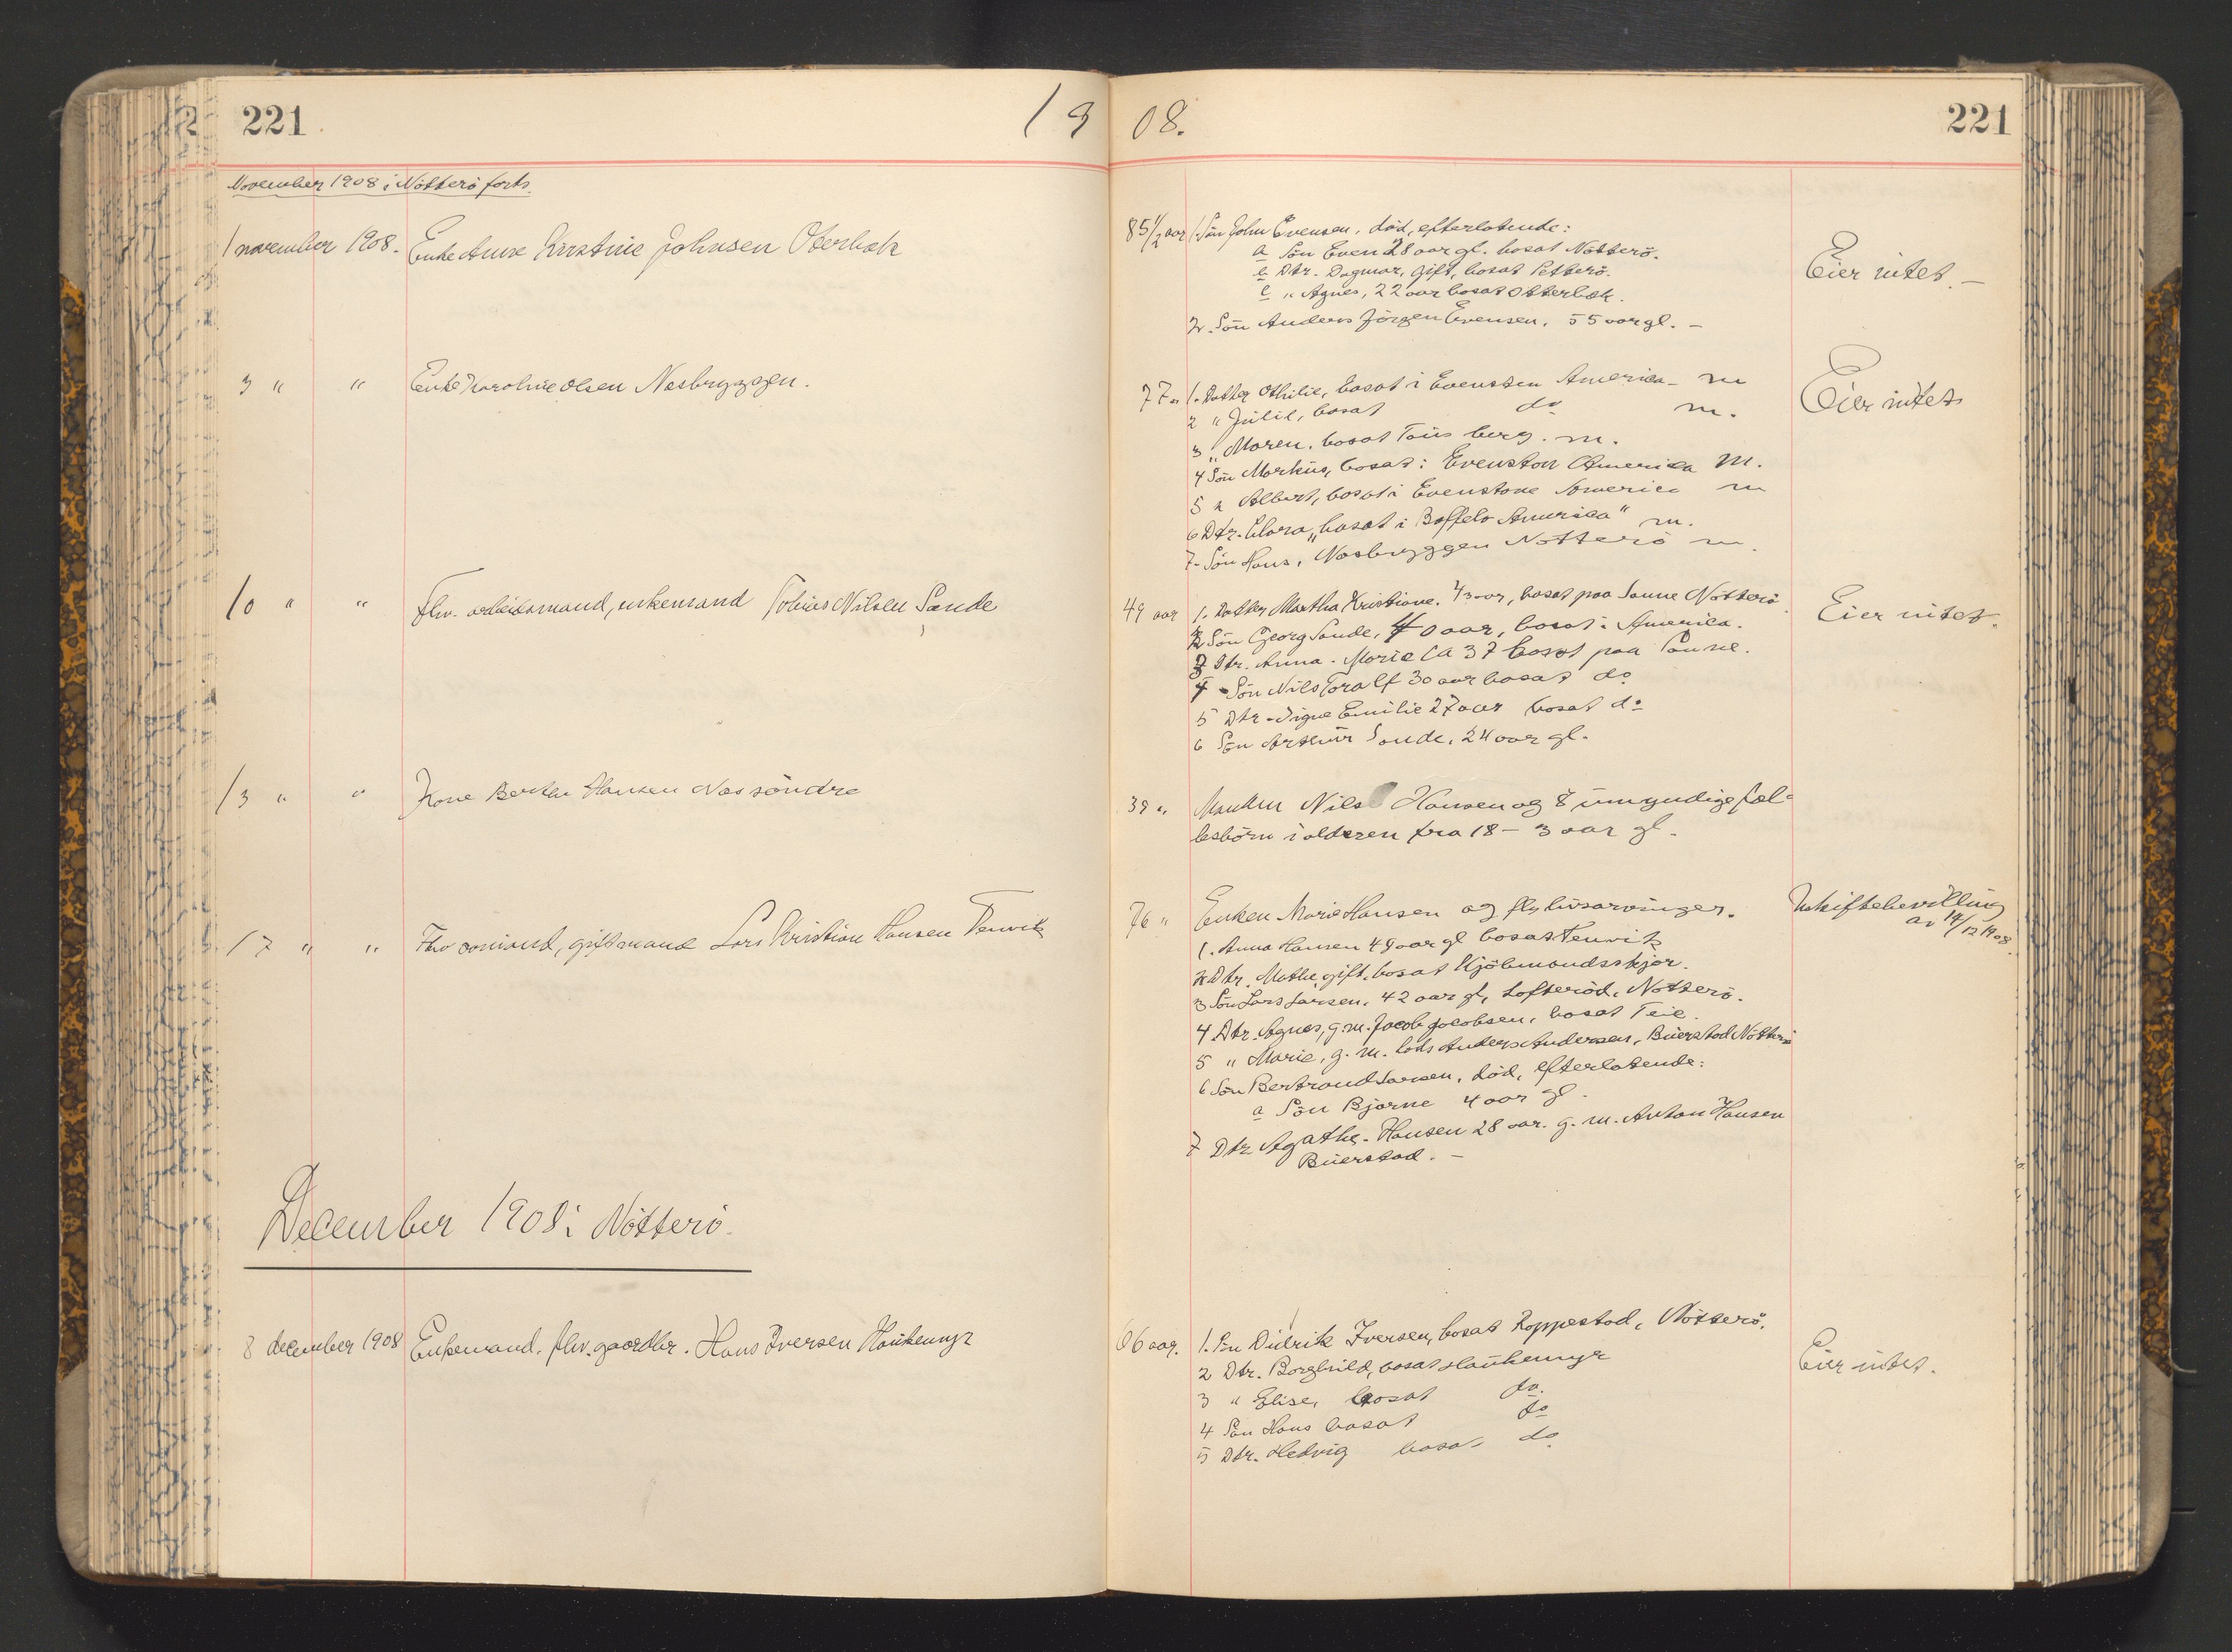 221
19 08.
221
November 1908 i Nötterö forts.
1 november 1908. Enke Anne Kirstine Johnsen Oterbæk
85 1/2 aar 1. Sön John Evensen, död, efterlatende:
a Sön Even 28 aar gl. bosat Nötterö.
b Dtr. Dagmar, gift, bosat
c " Agnes, 22 aar bosat Otterbæk.
2. Sön Anders Jörgen Evensen, 55 aar gl. –
Eier intet. –
3 " " Enke Karoline Olsen Nesbryggen.
77 " 1. Datter Othilie, bosat i Evensten America – m
2 " Julie, bosat do m.
3 " Maren, bosat Töns berg. m.
4 Sön Markus, bosat i Evenston America m.
5 " Albert, bosat i Evenstone America m
6 Dtr. Clara, bosat i "Boffelo America" m.
7 Sön Hans, Nesbryggen Nötterö m.
Eier intet
10 " " fhv. arbeidsmand, enkemand Tobias Nilsen Sande
49 aar 1. Datter Martha Kristiane, 43 aar, bosat paa Sanne Nötterö
2 Sön Georg Sande, 40 aar, bosat i America.
3 Dtr. Anna-Marie ca 37 bosat paa Sanne.
4 Sön Nils Toralf 30 aar bosat do
5 Dtr. Signe Emilie 27 aar bosat do
6 Sön Arthur Sande, 24 aar gl.
Eier intet.
13 " " Kone Berthe Hansen Nes söndre
39 " Manden Nils Hansen og 8 umyndige fæl-
lesbörn i alderen fra 18 – 3 aar gl.
17 " " Fhv sömand, gift mand Lars Kristian Hansen Tenvik
76 " Enken Marie Hansen og flg livsarvinger.
1. Anna Hansen 49 aar gl bosat Tenvik
2 Dtr. Mathe, gift, bosat Kjöbmandsskjær.
3 Sön Lars Larsen, 42 aar gl, Lofteröd, Nötterö.
4. Dtr. Agnes, g. m. Jacob Jacobsen, bosat Teie.
5 " Marie, g. m. lods Anders Andersen, Buerstad Nötterö
6 Sön Bertrand Larsen, död, efterlatende:
a Sön Bjarne 4 aar gl.
7 Dtr Agathe Hansen 28 aar. g. m. Anton Hansen
Buerstad. –
Uskiftebevilling
av 14/12 1908.
December 1908 i Nötterö.
8 december 1908 Enkemand, fhv. gaardbr. Hans Iversen Haukemyr
66 aar. 1. Sön Didrik Iversen, bosat Roppestad, Nötterö.
2 Dtr. Borghild, bosat Haukemyr
3 " Elise, bosat do.
4 Sön Hans bosat do
5 Dtr. Hedvig bosat do
Eier intet.